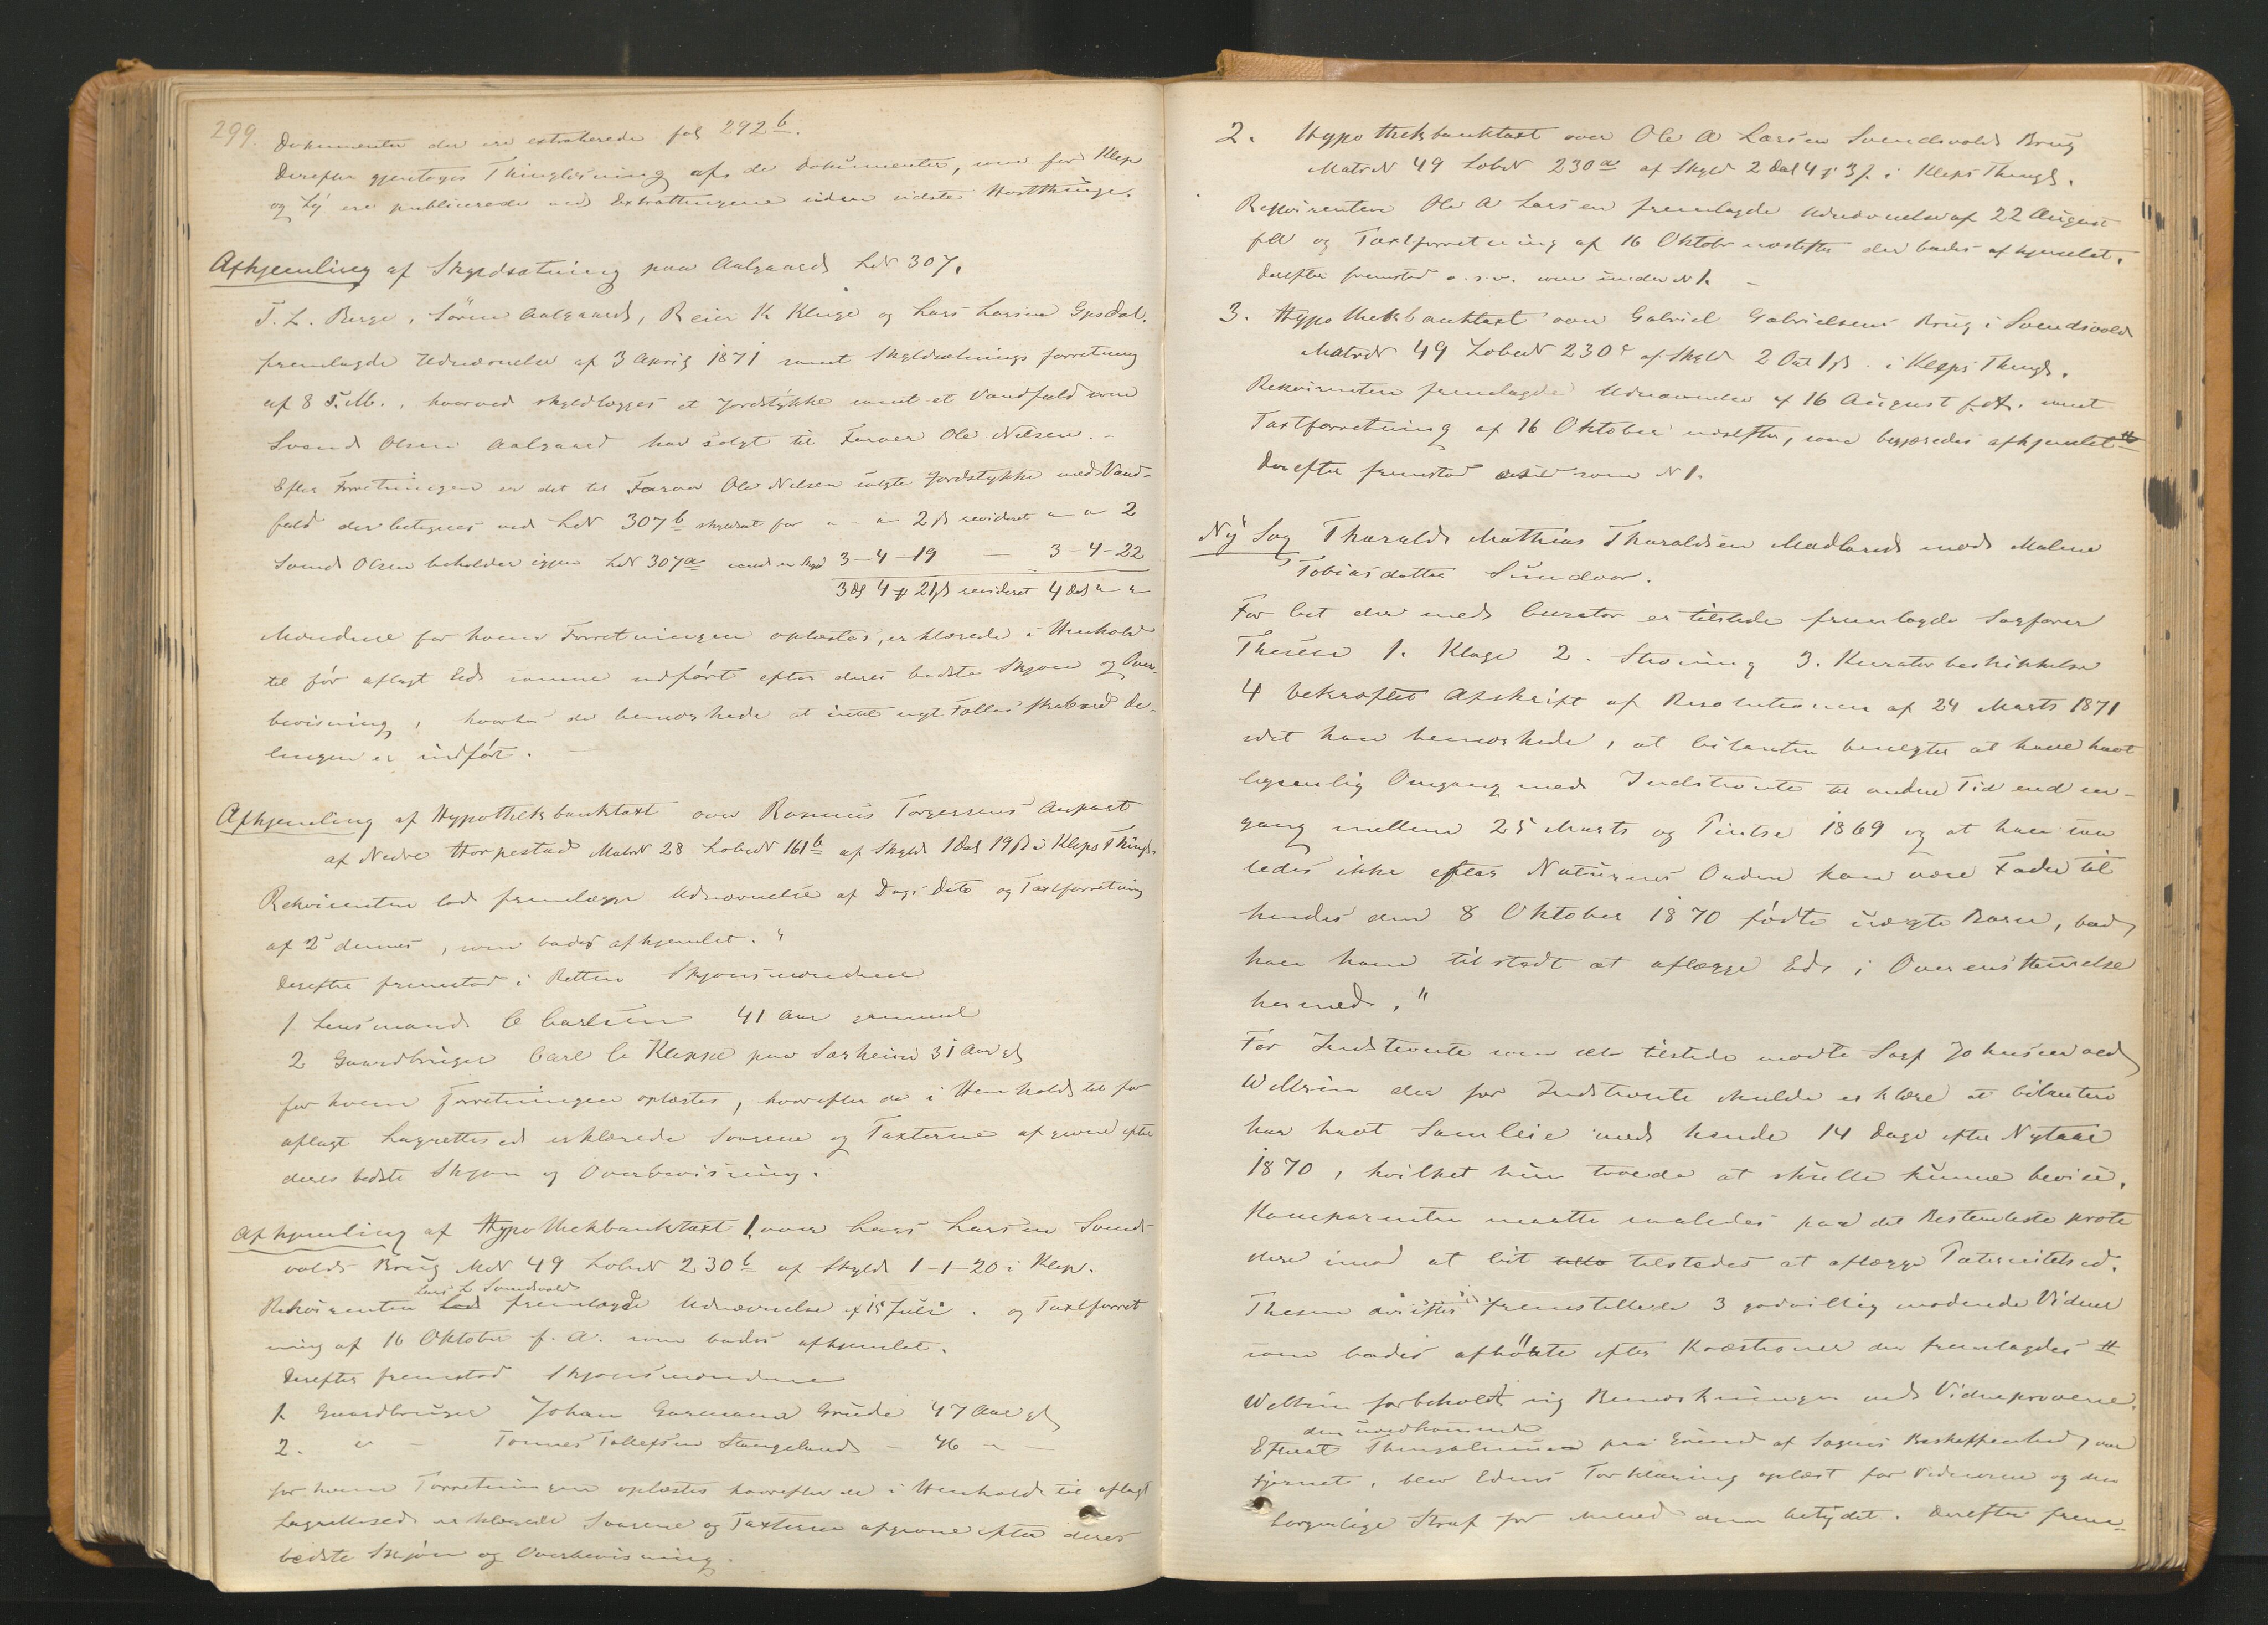 299.
Dokumenter der ere extraherede fol 292b.
Derefter gjentoges Thinglæsning af de Dokumenter, som for Klep
og Ly ere publicerede ved Extrathingene siden sidste Høstthinge.
Afhjemling af Skyldsætning paa Aalgaard LN 307.
T. L. Berge, Sören Aalgaard, Reier K Kluge og Lars Larsen Gjesdal
fremlagde Udnævnelse af 3 April 1871 samt Skyldsætnings forretning
af 8 s. M., hvorved skyldlægges et Jordstykke samt et Vandfald som
Svend Olsen Aalgaard har solgt til Farver Ole Nilsen. -
Efter Forretningen er det til Farver Ole Nilsen solgte Jordstykke med Vand-
fald der betegnes ved LN 307b skyldsat for " " 2 β revideret " " 2
Svend Olsen beholder igjen LN 307a 3-4-19 — 3-4-22
3 D 4 # 21 β revideret 4 Dal " "
Mændene for hvem Forretningen oplæstes, erklærede i Henhold
til før aflagt Ed samme udført efter deres bedste Skjøn og Over-
bevisning, hvorhos de bemærkede at intet nyt Fællesskab ved De-
lingen er indført. —
Afhjemling af Hypothekbanktaxt over Rasmus Torgersens Anpart
af Nedre Horpestad Matr N 28 Løbe N 161b af Skyld 1 Dal 19 β i Kleps Thingl.
Rekvirenten lod fremlægge Udnævnelse af Dags Dato og Taxtforretning
af 2 dennes, som bades afhjemlet. "
Derefter fremstod i Retten Skjønsmændene
1 Lensmand C Carlsen 41 Aar gammel
2 Gaardbruger Carl C Kleppe paa Sørheim 31 Aar gl
for hvem Forretningen oplæstes, hvorefter de i Henhold til før
aflagt Lagrettesed erklærede Svarene og Taxterne afgivne efter
deres bedste Skjøn og Overbevisning.
Afhjemling af Hypothekbanktaxt 1. over Lars Larsen Svends-
volds Brug M N 49 Løbe N 230b af Skyld 1-1-20 i Klep.
Lars L Svendsvold
Rekvirenten lod fremlagde Udnævnelse af 15 Juli. og Taxtforret
ning af 16 Oktober f. A. som bades afhjemlet.
Derefter fremstod Skjønsmændene
1. Gaardbruger Johan Gaarmand Grude 47 Aar gl
2. " - Tønnes Tollefsen Stangeland - 46 " -
for hvem Forretningen oplæstes hvorefter de i Henhold til aflagt
Lagrettesed erklærede Svarene og Taxterne afgivne efter deres
bedste Skjøn og Overbevisning.
2. Hypothekbanktaxt over Ole A Larsen Svendsvolds Brug
Matr N 49 Løbe N 230a af Skyld 2 Dal 4 # 3 β. i Kleps Thingl.
Rekvirenten Ole A Larsen fremlagde Udnævnelse af 22 August
f A og Taxtforretning af 16 Oktobr næstefter der bades afhjemlet.
Derefter fremstod o. s. v. som under N 1. -
3. Hypothekbanktaxt over Gabriel Gabrielsens Brug i Svendsvold
Matr N 49 Løbe N 230c af Skyld 2 Dal 1 β. i Kleps Thingl.
Rekvirenten fremlagde Udnævnelse af 16 August f. A. samt
Taxtforretning af 16 Oktober næstefter, som begjæredes afhjemlet "
Derefter fremstod som N 1.
Ny Sag Tharald Mathias Tharaldsen Madland mod Malene
Tobiasdatter Sundvor.
For Cit der med Curator er tilstede fremlagde Sagfører
Thesen 1. Klage 2. Stævning 3. Kuratorbeskikkelse
4 bekræftet Afskrift af Resolutionen af 24 Marts 1871
idet han bemærkede, at Citanten benegter at have havt
legemlig Omgang med Indstævnte til anden Tid end en-
gang mellem 25 Marts og Pintse 1869 og at han saa
ledes ikke efter Naturens Orden kan være Fader til
hendes den 8 Oktober 1870 fødte uægte Barn, bad
han ham tilstedt at aflægge Ed i Overensstemmelse
hermed. "
For Indstævnte som selv tilstede mødte Sagf Johnsen ved
Willsen der for Indstævnte erklære at Citanten
har havt Samleie med hende 14 Dage efter Nytaar
1870, hvilket hun troede at skulle kunne bevise.
Komparenten maatte saaledes paa det Bestemteste prote
stere imod at Cit tilstedes at aflægge Paternitetsed.
Thesen derefter fremstillede 3 godvillig mødende Vidner
som bades afhørte efter Kvæstioner der fremlagdes "
Willsen forbeholdt sig Bemærkninger ved Vidneprovene.
den uvedkommende
Efterat Thingalmuen paa Grund af Sagens Beskaffenhed var
fjernet, blev Edens Forklaring oplæst for Vidnerne og den
borgerlige Straf for Mened dem betydet. Derefter frem-